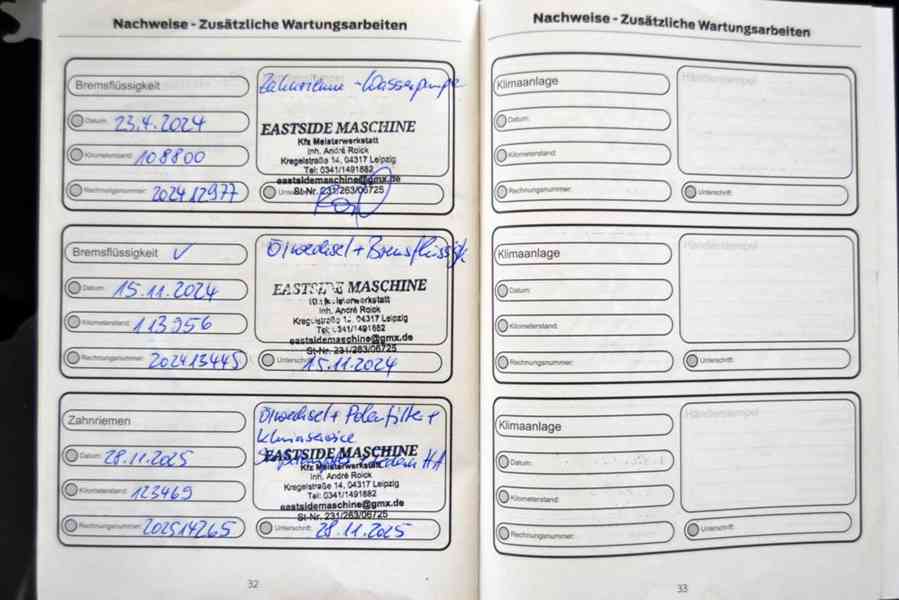 Nachweise - Zusätzliche Wartungsarbeiten
Bremsflüssigkeit
Datum: 23.4.2024
Kilometerstand: 108800
Rechnungsnummer: 202412977
Zahnriemen - Wasserpumpe
EASTSIDE MASCHINE
Kfz Meisterwerkstatt
Inh. André Roick
Kregelstraße 14, 04317 Leipzig
Tel: 0341/1491882
eastsidemaschine@gmx.de
St-Nr. 231/263/06725
Bremsflüssigkeit ✓
Datum: 15.11.2024
Kilometerstand: 113956
Rechnungsnummer: 202413445
Ölwechsel + Bremsflüssigk
EASTSIDE MASCHINE
Kfz Meisterwerkstatt
Inh. André Roick
Kregelstraße 14, 04317 Leipzig
Tel: 0341/1491882
eastsidemaschine@gmx.de
St-Nr. 231/263/06725
Unterschrift: 15.11.2024
Zahnriemen
Datum: 28.11.2025
Kilometerstand: 123469
Rechnungsnummer: 202514265
Ölwechsel + Pollenfilter +
Klimaservice
EASTSIDE MASCHINE
Kfz Meisterwerkstatt
Inh. André Roick
Kregelstraße 14, 04317 Leipzig
Tel: 0341/1491882
eastsidemaschine@gmx.de
St-Nr. 231/263/06725
Unterschrift: 28.11.2025
32
Nachweise - Zusätzliche Wartungsarbeiten
Klimaanlage
Datum:
Kilometerstand:
Rechnungsnummer:
Händlerstempel
Unterschrift:
Klimaanlage
Datum:
Kilometerstand:
Rechnungsnummer:
Händlerstempel
Unterschrift:
Klimaanlage
Datum:
Kilometerstand:
Rechnungsnummer:
Händlerstempel
Unterschrift:
33